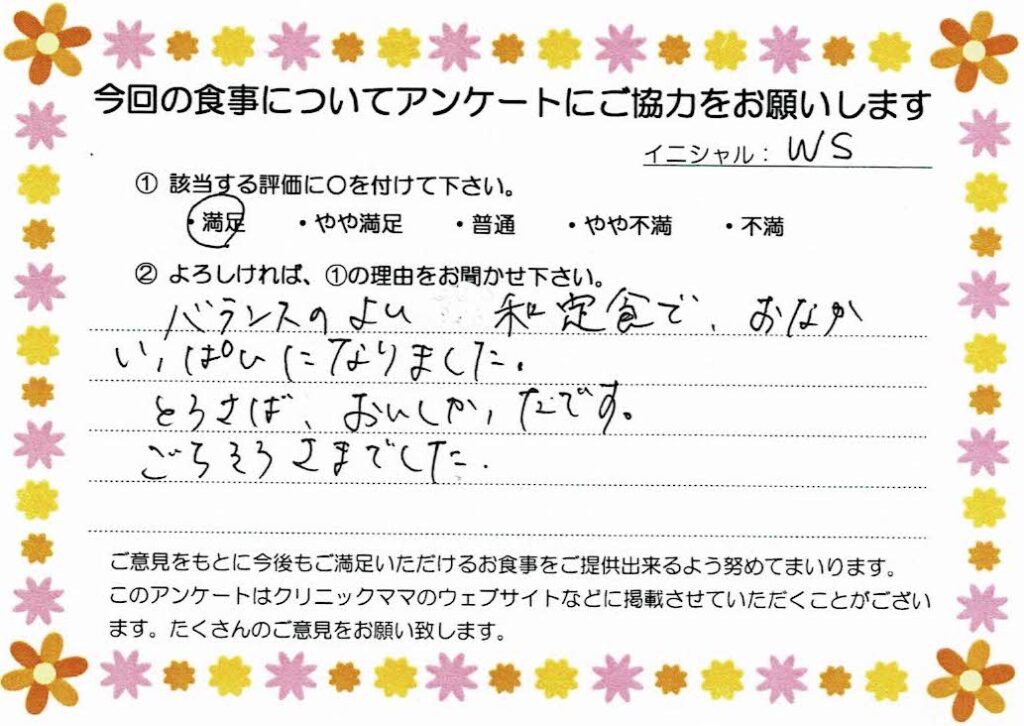 今回の食事についてアンケートにご協力をお願いします
イニシャル：WS
① 該当する評価に○を付けて下さい。
・満足 ・やや満足 ・普通 ・やや不満 ・不満
② よろしければ、①の理由をお聞かせ下さい。
バランスのよい 和定食で、おなか
いっぱいになりました。
とろさば、おいしかったです。
ごちそうさまでした.
ご意見をもとに今後もご満足いただけるお食事をご提供出来るよう努めてまいります。
このアンケートはクリニックママのウェブサイトなどに掲載させていただくことがござい
ます。たくさんのご意見をお願い致します。